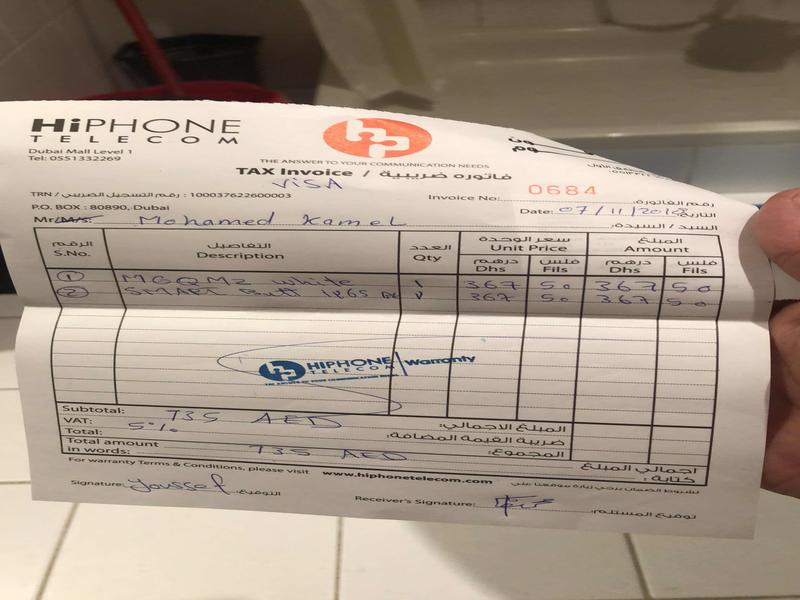 HiPHONE
TELECOM
Dubai Mall Level 1
Tel: 0551332269
hp
THE ANSWER TO YOUR COMMUNICATION NEEDS
TAX Invoice / فاتورة ضريبية
VISA
TRN / رقم التسجيل الضريبي : 100037622600003
Invoice No: 0684 رقم الفاتورة:
P.O. BOX : 80890, Dubai
Date: 07/11/2018 التاريخ
Mr./M/s: Mohamed Kamel السيد / السيدة:
الرقم التفاصيل العدد سعر الوحدة المبلغ
S.No. Description Qty Unit Price Amount
درهم فلس درهم فلس
Dhs Fils Dhs Fils
1 MGQM2 White 1 367 50 367 50
2 SMART Batt 1865 367 50 367 50
hp HIPHONE TELECOM | Warranty
Subtotal: 735 AED المبلغ الاجمالي:
VAT: 5% ضريبة القيمة المضافة:
Total: 735 AED المجموع:
Total amount in words: اجمالي المبلغ كتابة :
For warranty Terms & Conditions, please visit www.hiphonetelecom.com لشروط الضمان يرجى زيارة موقعنا على
Signature: Youssef التوقيع:
Receiver's Signature: توقيع المستلم: